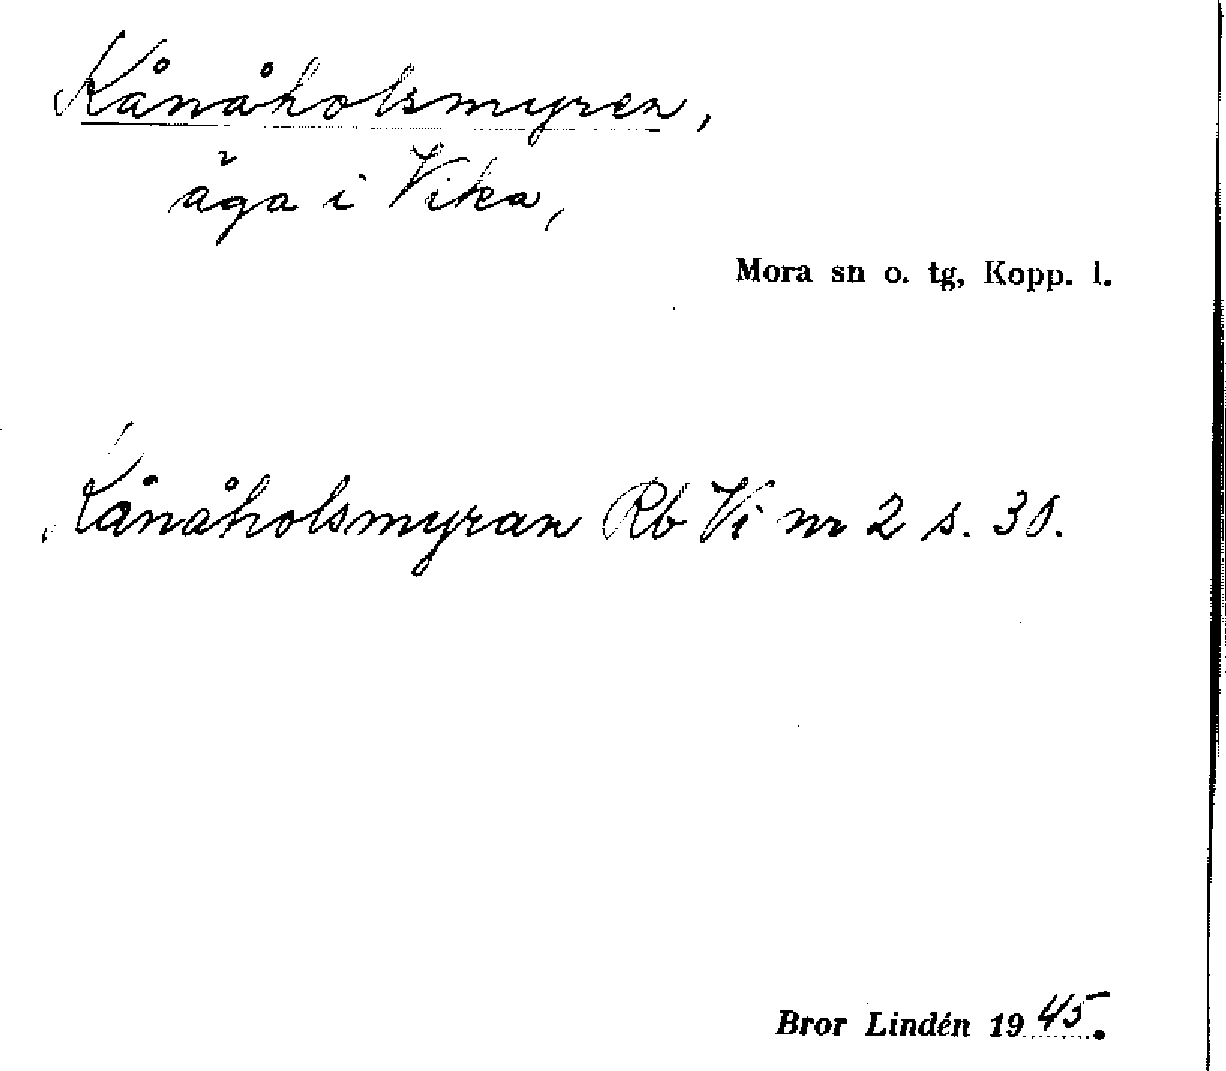 Kånåholsmyren,
äga i Vika,
Mora sn o. tg, Kopp. l.
Kånåholsmyran Rb Vi nr 2 s. 30.
Bror Lindén 1945.